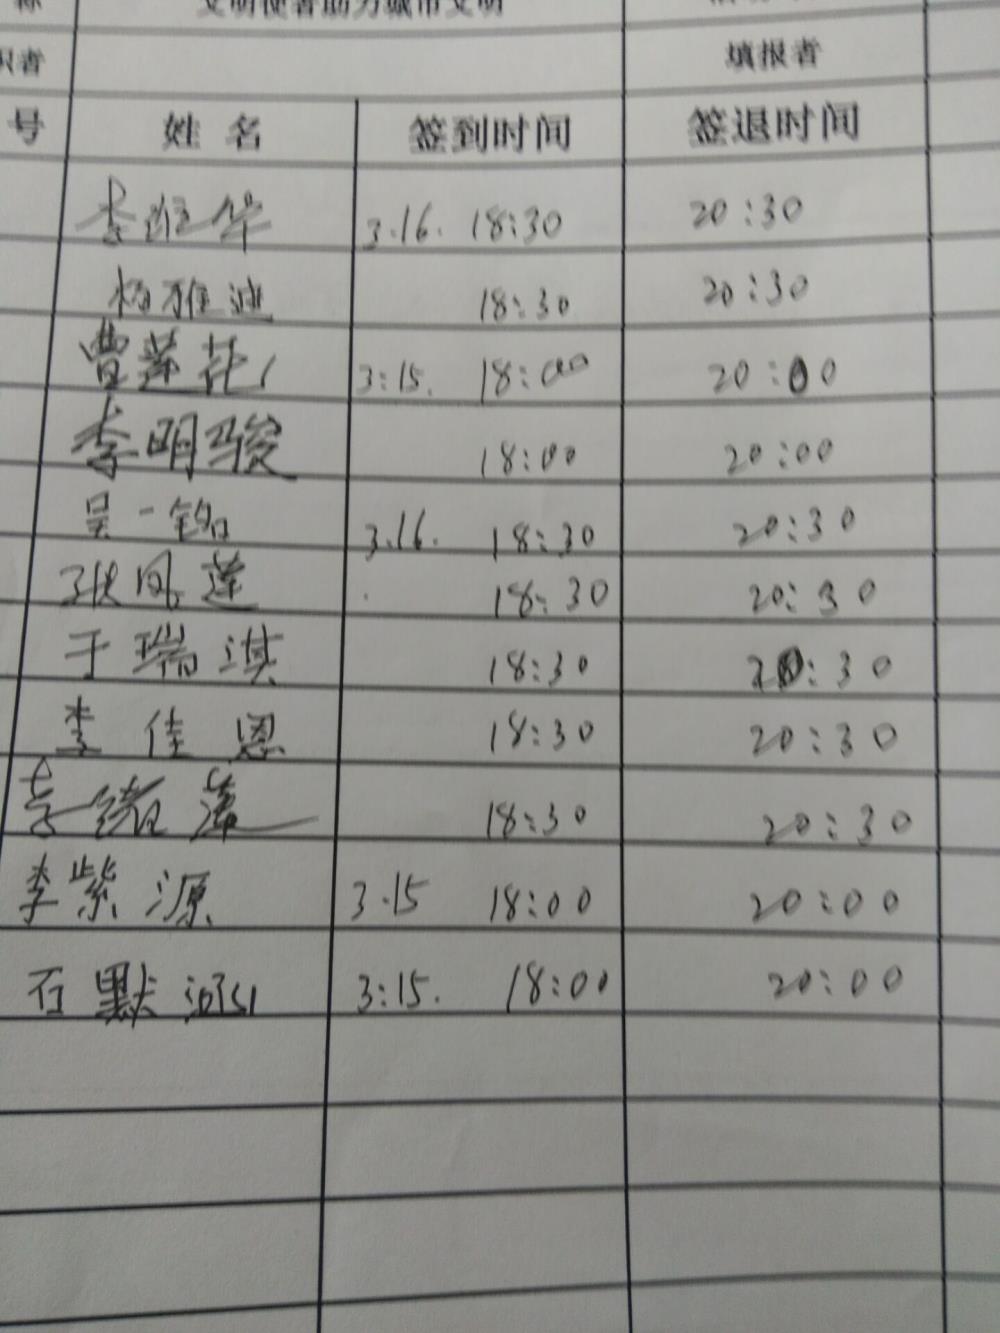 称 文明使者助力城市文明
织者 填报者
号 姓 名 签到时间 签退时间
3.16. 18:30 20:30
杨雅迪 18:30 20:30
曹莲花 3:15. 18:00 20:00
李明骏 18:00 20:00
吴一铭 3.16. 18:30 20:30
张凤莲 18:30 20:30
于瑞淇 18:30 20:30
李佳恩 18:30 20:30
18:30 20:30
李紫源 3.15 18:00 20:00
石默涵 3:15. 18:00 20:00